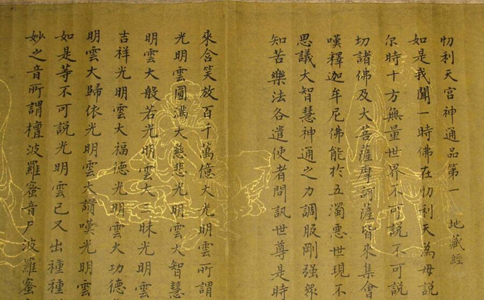 忉利天宮神通品第一　地藏經
如是我聞一時佛在忉利天為母說
尔時十方無量世界不可說不可說
切諸佛及大菩薩摩訶薩皆來集會
嘆釋迦牟尼佛能於五濁惡世現不
思議大智慧神通之力調服剛強眾
知苦樂法各遣使者問訊世尊是時
來含笑放百千萬億大光明雲所謂
光明雲圓滿大慈悲光明雲大智慧
明雲大般若光明雲大三昧光明雲
吉祥光明雲大福德光明雲大功德
明雲大歸依光明雲大讚嘆光明雲
如是等不可說光明雲已又出種種
妙之音所謂檀波羅蜜音尸波羅蜜